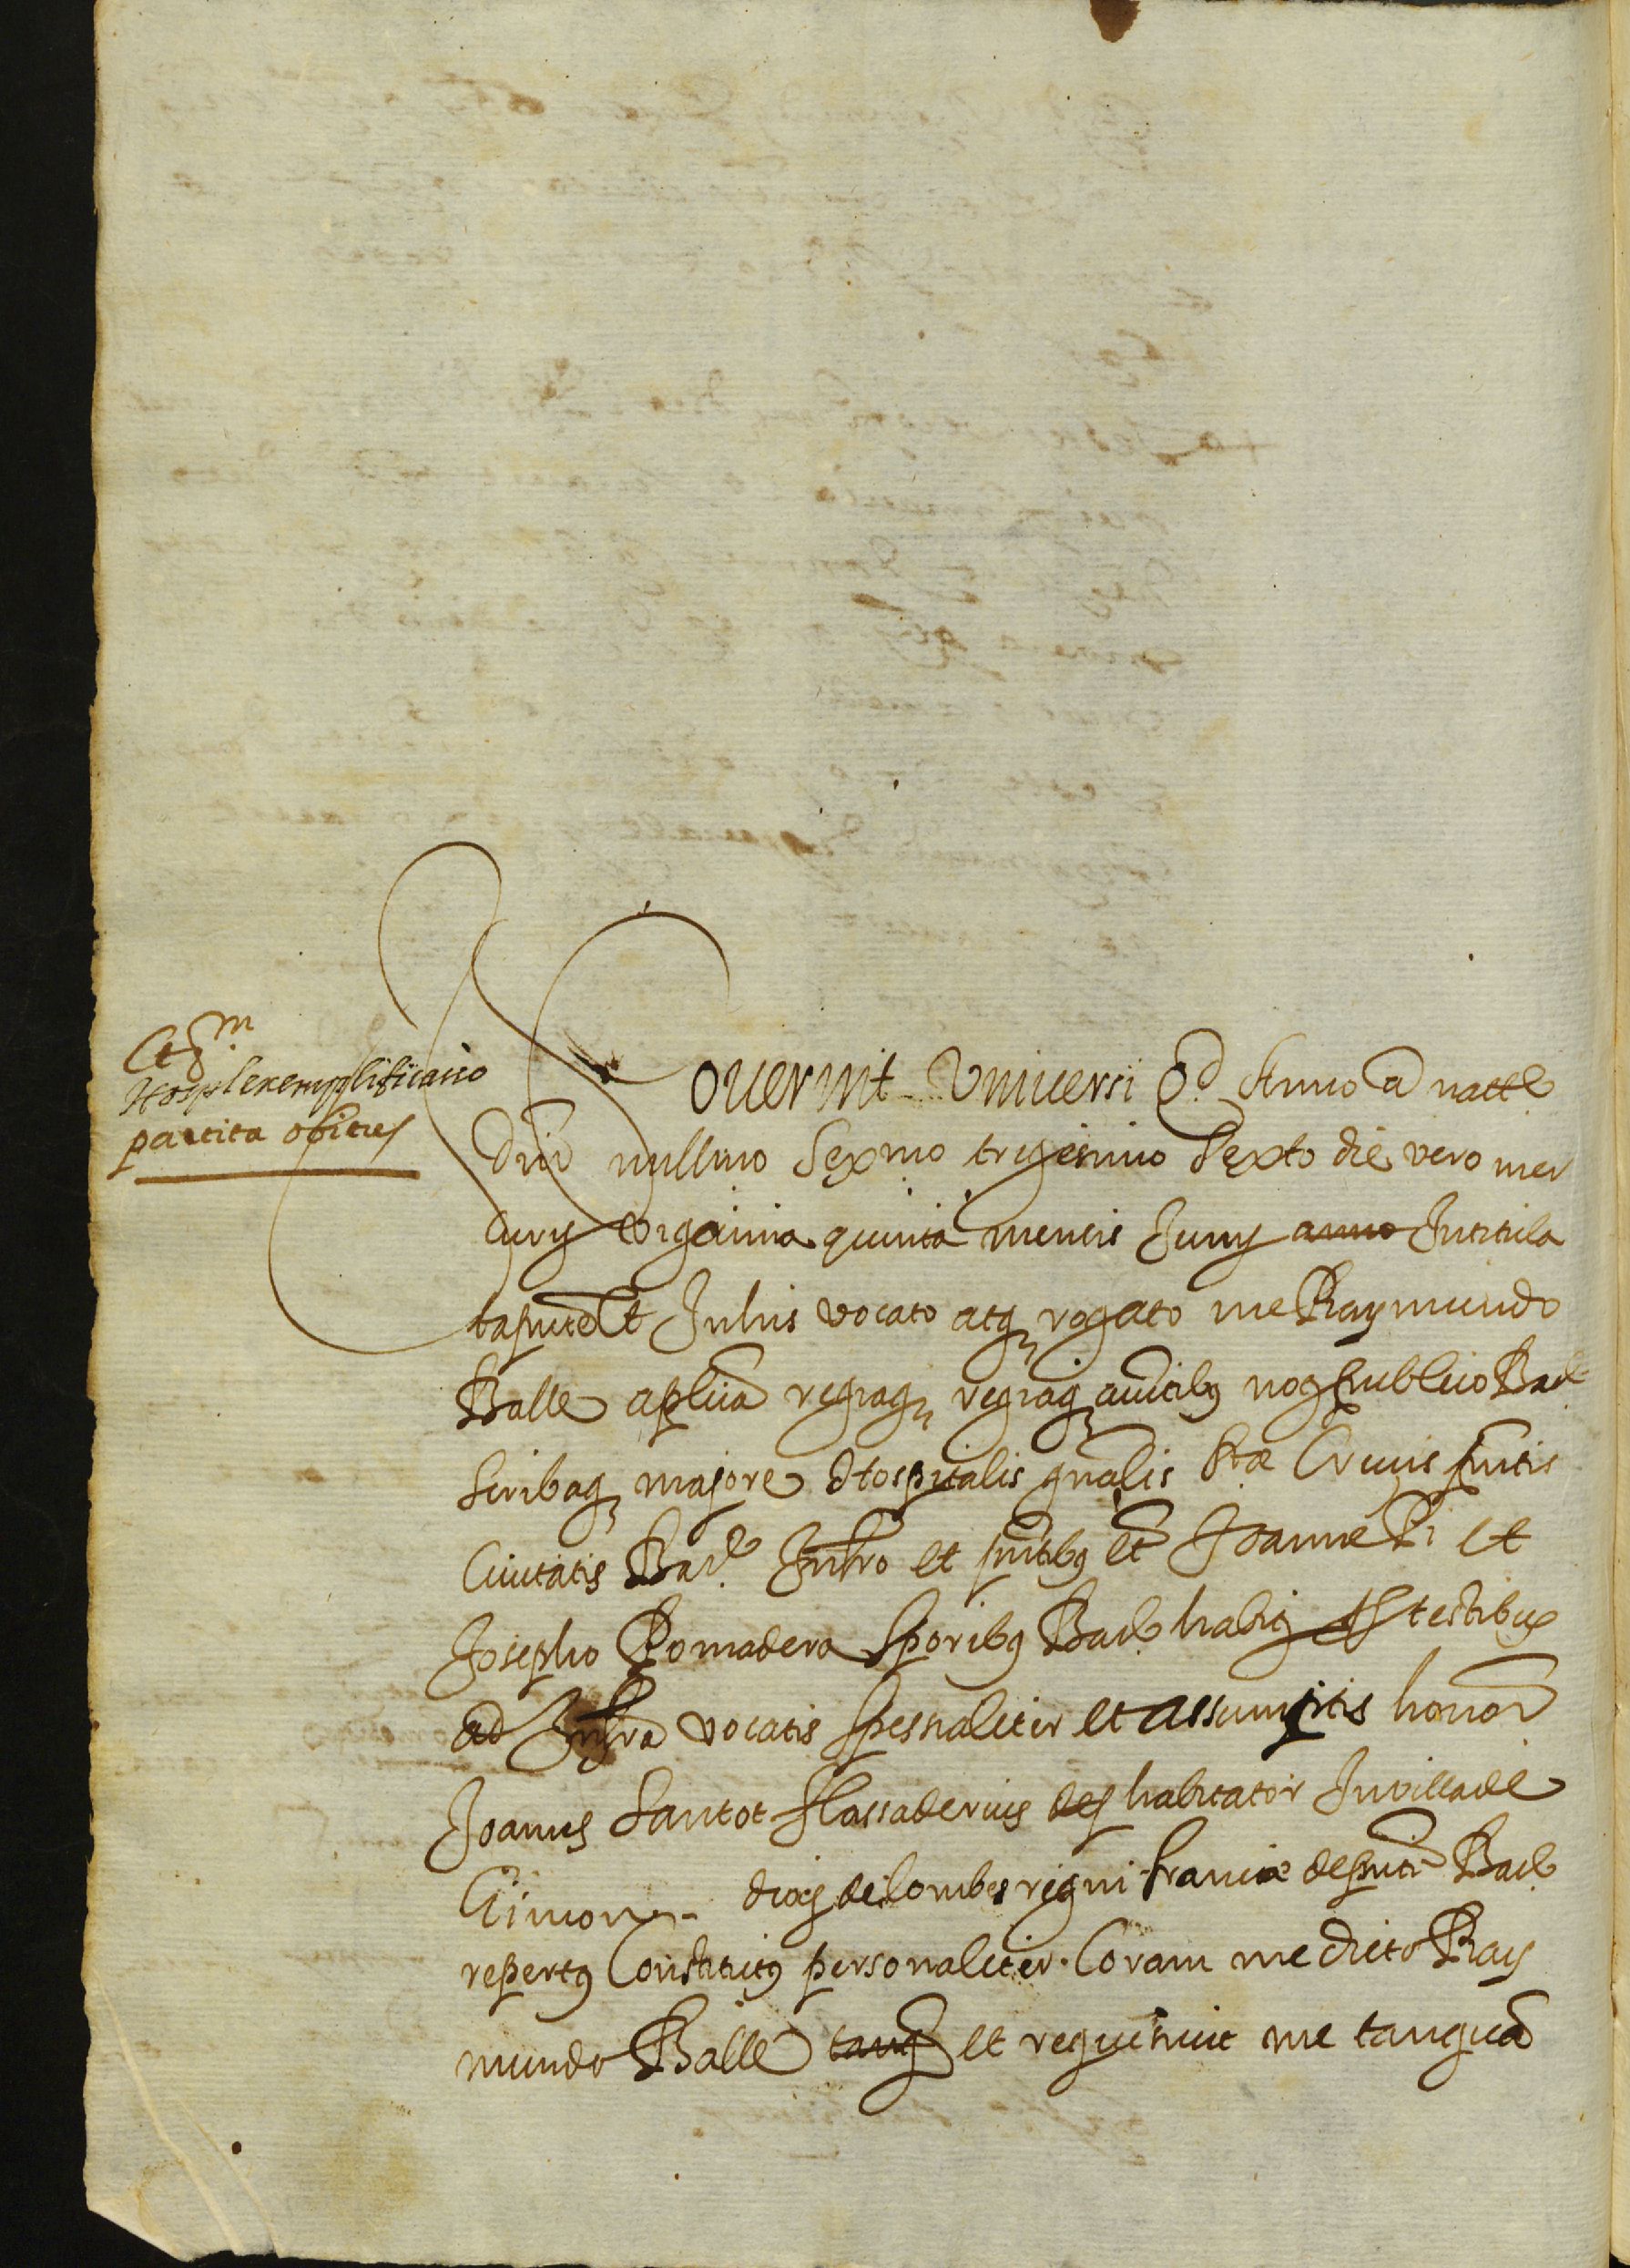 Hospl exemplificacio
partita obitus
Noverint Universi qd Anno a nattē
Dni millmo Sexmo trigesimo Sexto die vero mer
Curij vigesima quinta mensis Junij anno Intitula
Julius vocato atq rogato me Raymundo
Balle aplica regiaq regiaq auctibq noq publico Bar
Scribaq majore Hospitalis gnalis Stae Crucis pntis
Civitatis Bar. Intro et pntibq et Joanne Pi et
Josepho Pomadera Sporibq Barē habiq testibus
ad Infra vocatis spesnaliter et assumptis honor
Joanes Santot flassaderius des habitator In villa de
Gimon diocs de Lombes regni franciæ de pnti Barē
repertq Constitutq personaliter Coram me dicto Ray
mundo Balle tanq et requisivit me tanquā